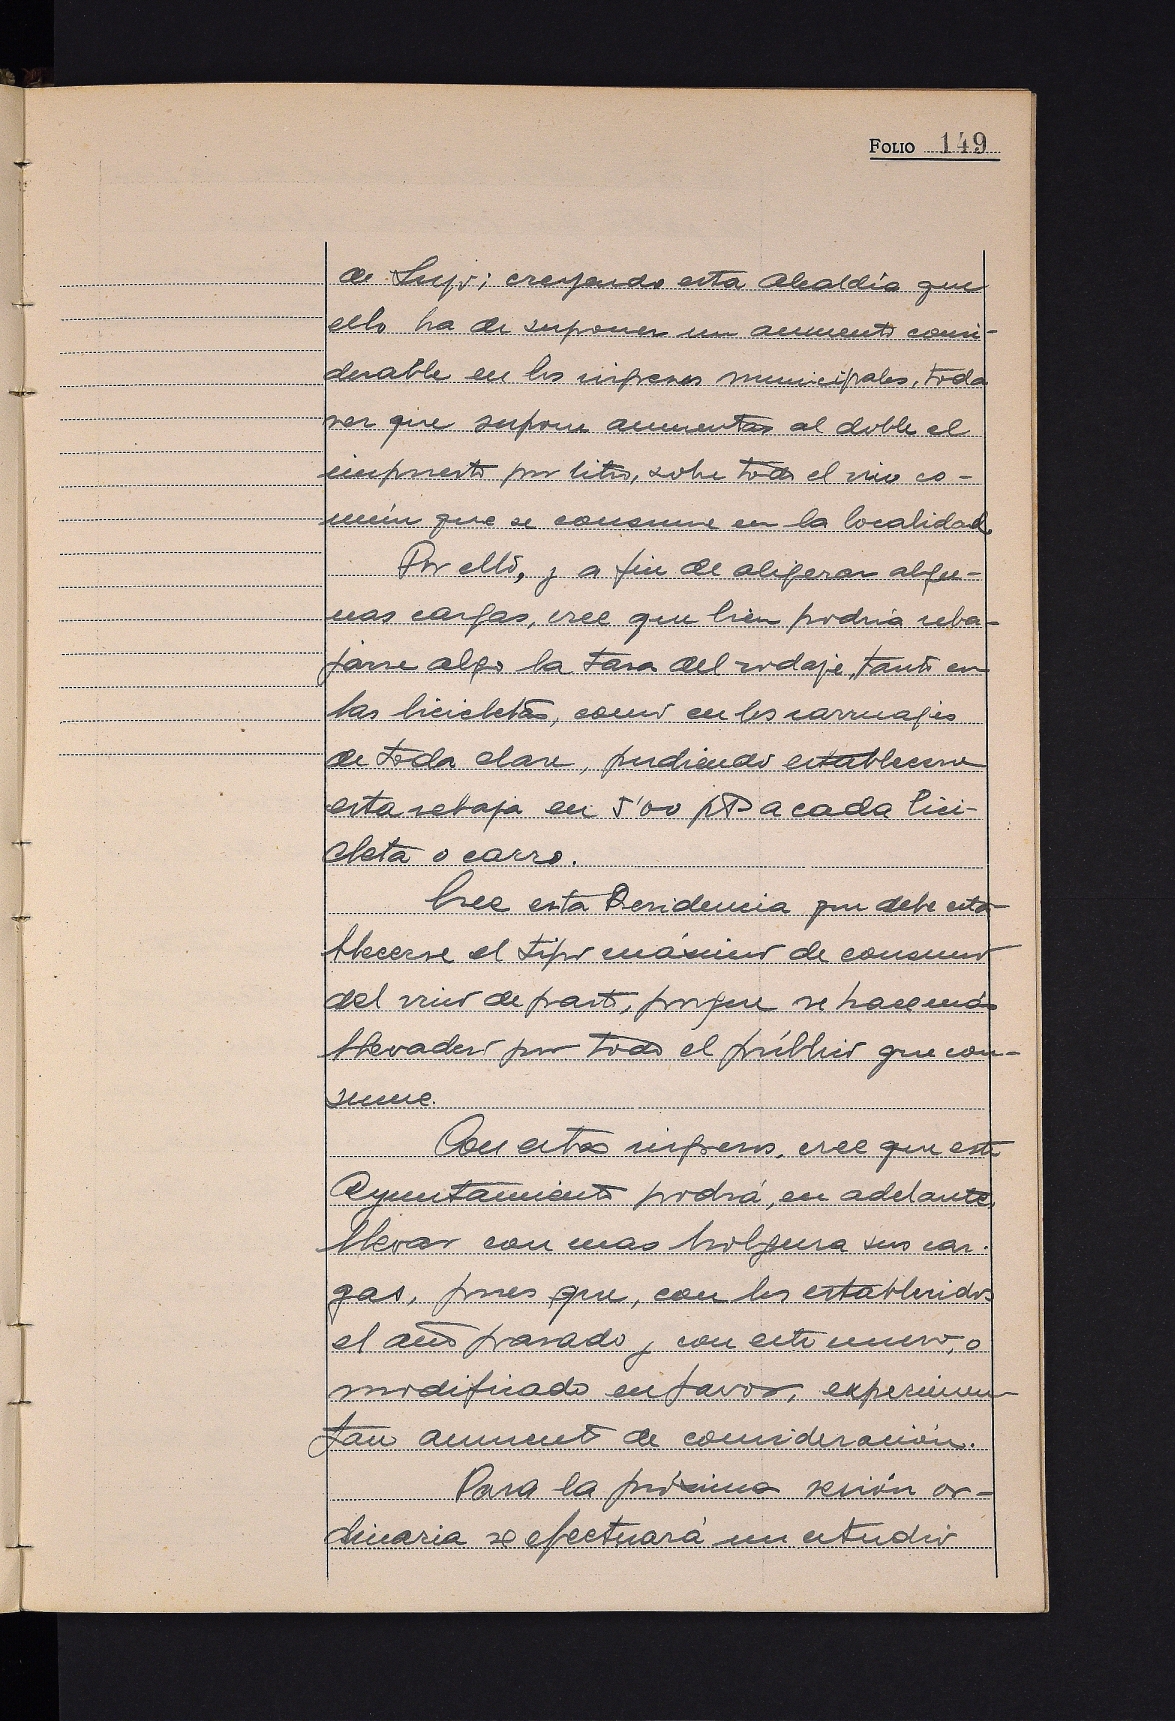 FOLIO 149
de Lujo; creyendo esta Alcaldía que
ello ha de suponer un aumento consi-
derable en los ingresos municipales, toda
vez que supone aumentar al doble el
impuesto por litro, sobre todo el vino co-
mún que se consume en la localidad.
Por ello, y a fin de aligerar algu-
nas cargas, cree que bien podria reba-
jarse algo la tasa del rodaje, tanto en
las bicicletas, como en los carruajes
de toda clase, pudiendo establecerse
esta rebaja en 5'00 pts a cada bici-
cleta o carro.
Cree esta Presidencia que debe esta-
blecerse el tipo máximo de consumo
del vino de pasto, porque se hace más
llevadero por todo el público que con-
sume.
Con estos ingresos, cree que este
Ayuntamiento podrá, en adelante,
llevar con mas holgura sus car-
gas, pues que, con los establecidos
el año pasado y con este nuevo, o
modificado en favor, experimen-
tan aumento de consideración.
Para la próxima sesión or-
dinaria se efectuará un estudio